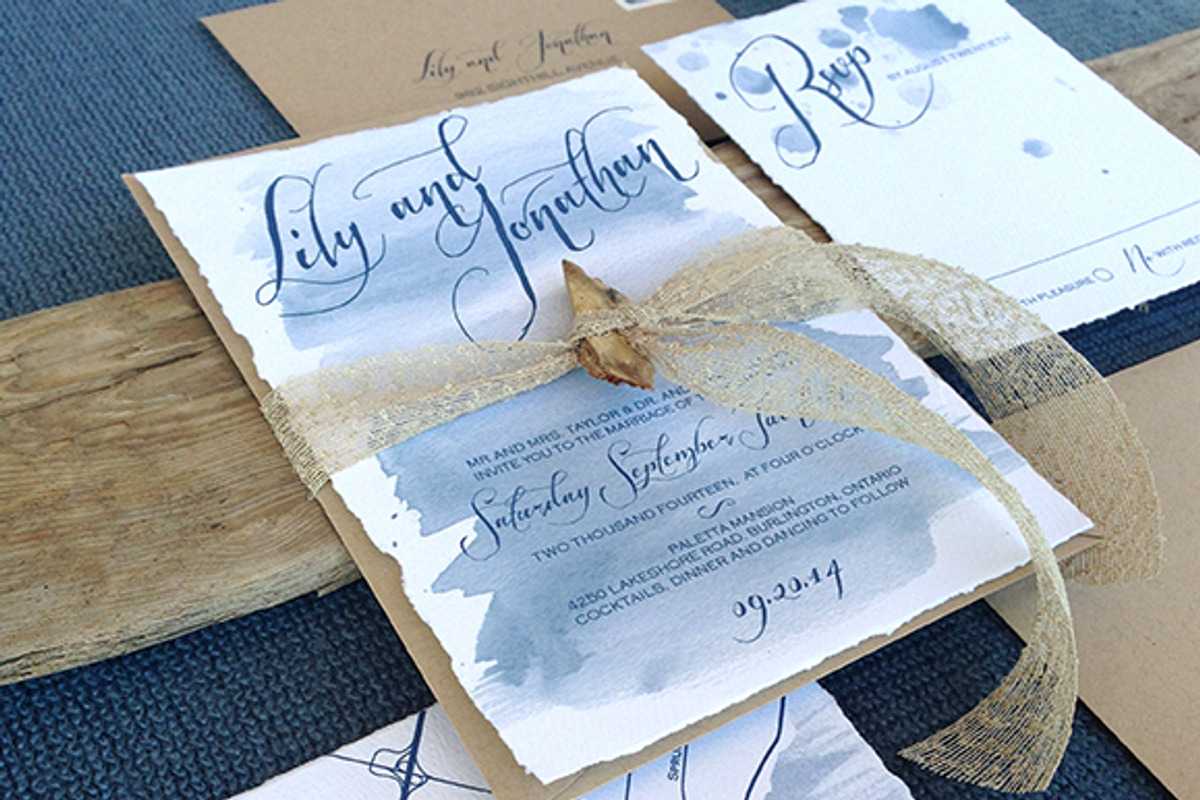 Lily and Jonathan
982 SIGHTHILL AVENUE
Rsvp
BY AUGUST TWENTIETH
TH PLEASURE No WITH
Lily and
Jonathan
MR AND MRS. TAYLOR & DR. AND
INVITE YOU TO THE MARRIAGE OF
Saturday September,
TWO THOUSAND FOURTEEN, AT FOUR O'CLOCK
PALETTA MANSION
4250 LAKESHORE ROAD, BURLINGTON, ONTARIO
COCKTAILS, DINNER AND DANCING TO FOLLOW
09.20.14
SPRU